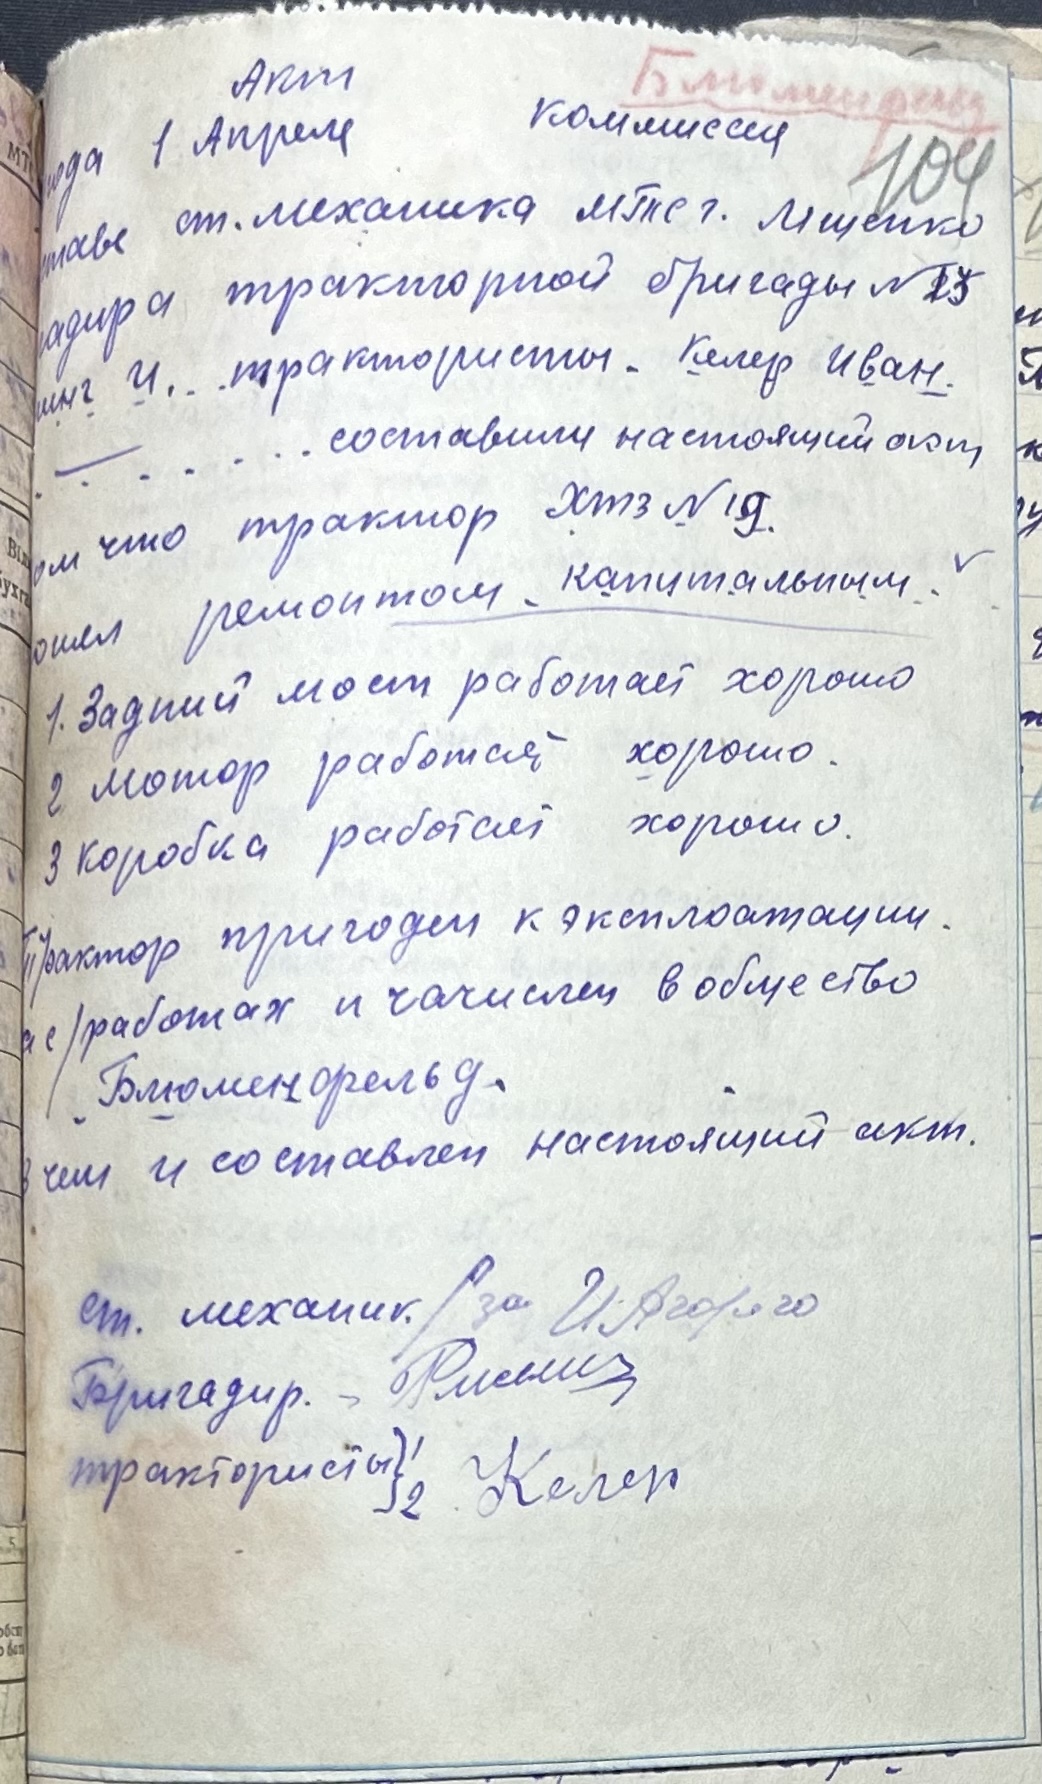 Блюменфельд
104
Акт
года 1 Апреля коммиссия
ставе ст. механика мтс г. Ищенко
адира тракторной бригады N
инг И. . . трактористы. Келер Иван.
. . . . . . составили настоящий акт
ом что трактор ХТЗ N 19.
ошел ремонтом. капитальным.
1. Задний мост работает хорошо
2 мотор работает хорошо.
3 коробка работает хорошо.
Трактор пригоден к эксплоатации.
ас/работах и зачислен в общество
Блюменфельд.
в чем и составлен настоящий акт.
ст. механик. / за
Бригадир. -
трактористы } 1
2 Келер